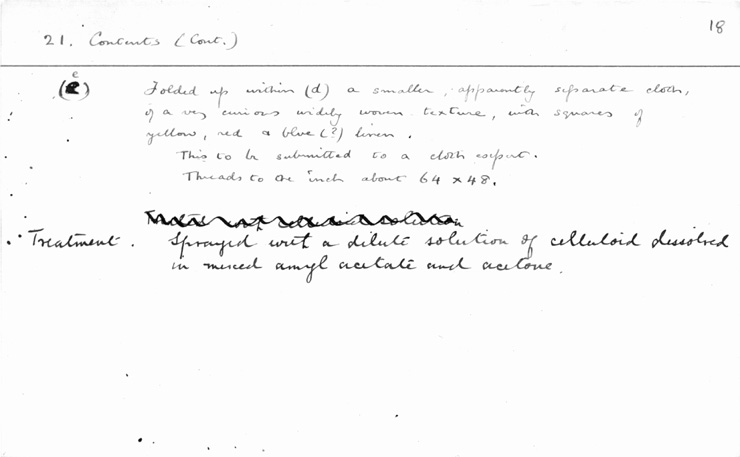 18
21. Contents (Cont.)
(e) Folded up within (d) a smaller, apparently separate cloth,
of a very curious widely woven texture, with squares of
yellow, red & blue (?) linen.
This to be submitted to a cloth expert.
Threads to the inch about 64 x 48.
Treatment. Sprayed with a dilute solution of celluloid dissolved
in mixed amyl acetate and acetone.